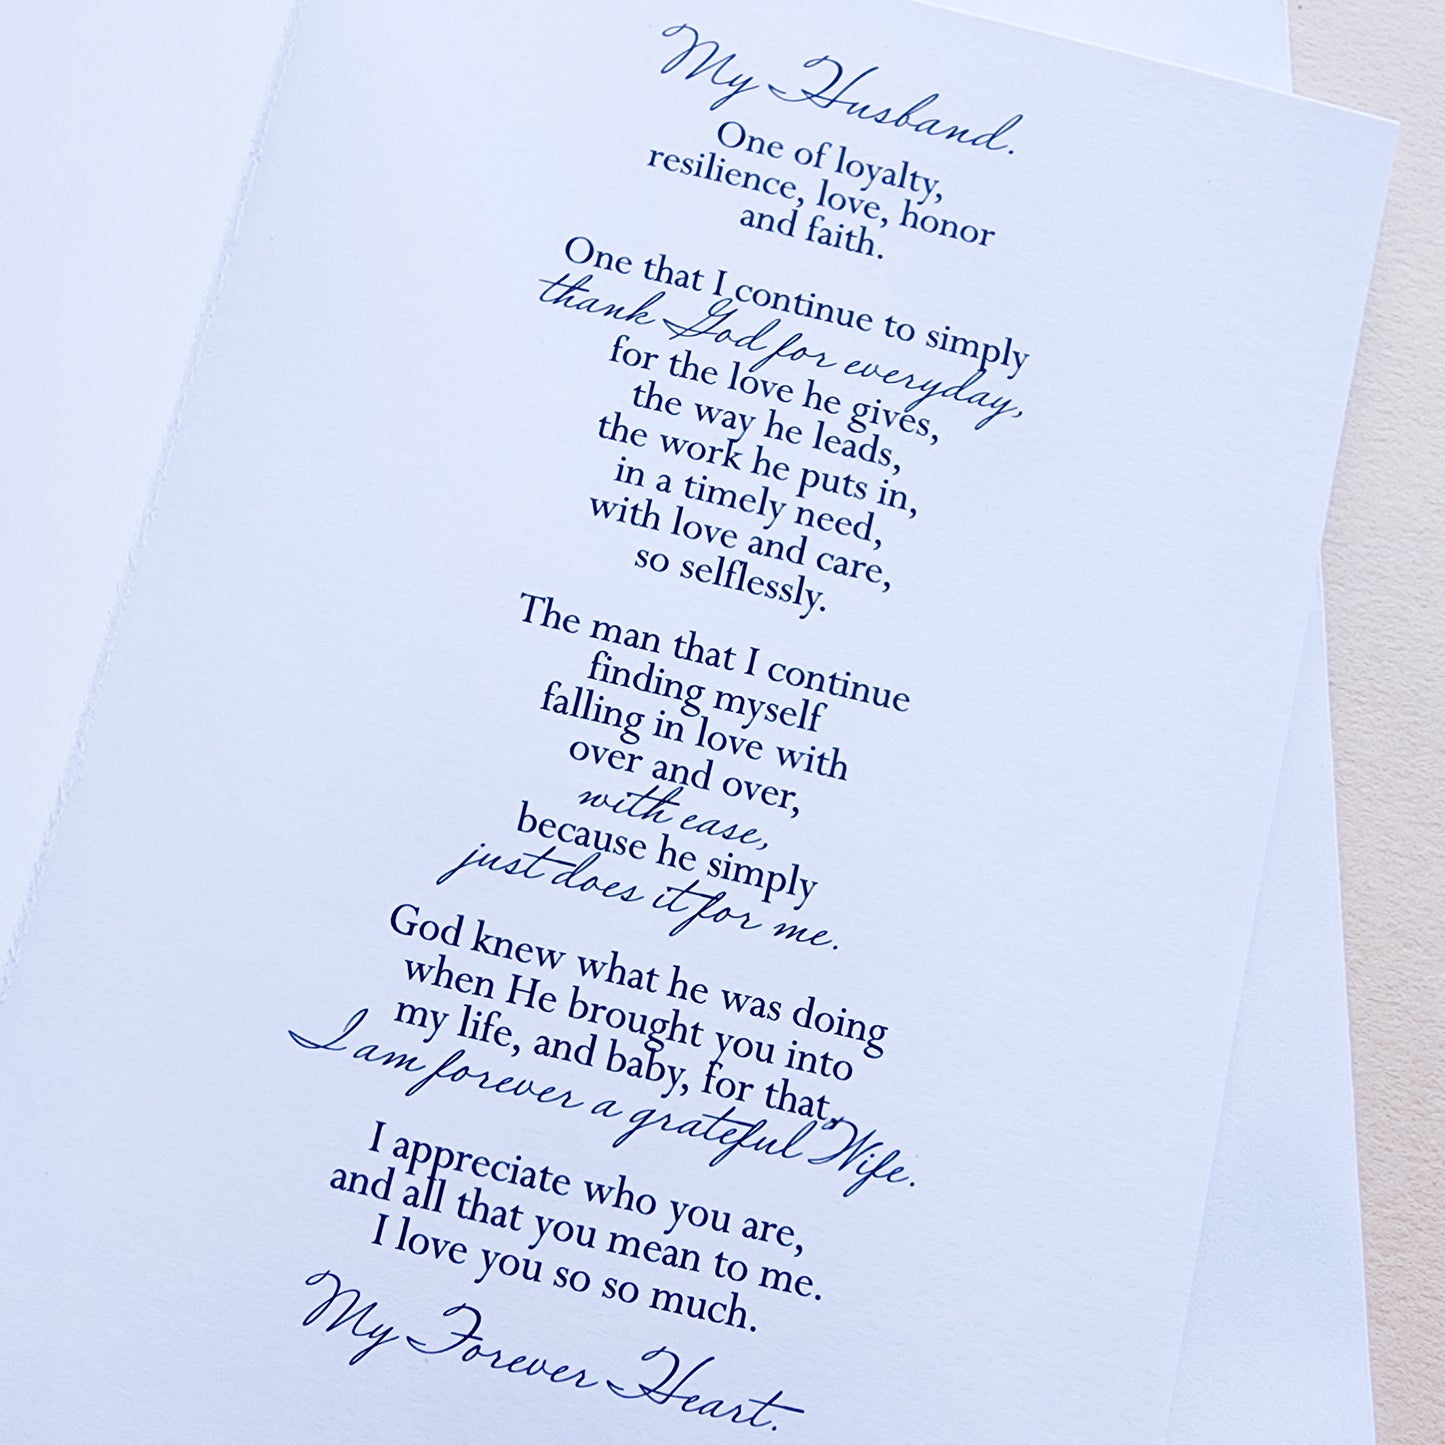 My Husband.
One of loyalty,
resilience, love, honor
and faith.
One that I continue to simply
thank God for everyday,
for the love he gives,
the way he leads,
the work he puts in,
in a timely need,
with love and care,
so selflessly.
The man that I continue
finding myself
falling in love with
over and over,
with ease,
because he simply
just does it for me.
God knew what he was doing
when He brought you into
my life, and baby, for that,
I am forever a grateful Wife.
I appreciate who you are,
and all that you mean to me.
I love you so so much.
My Forever Heart.